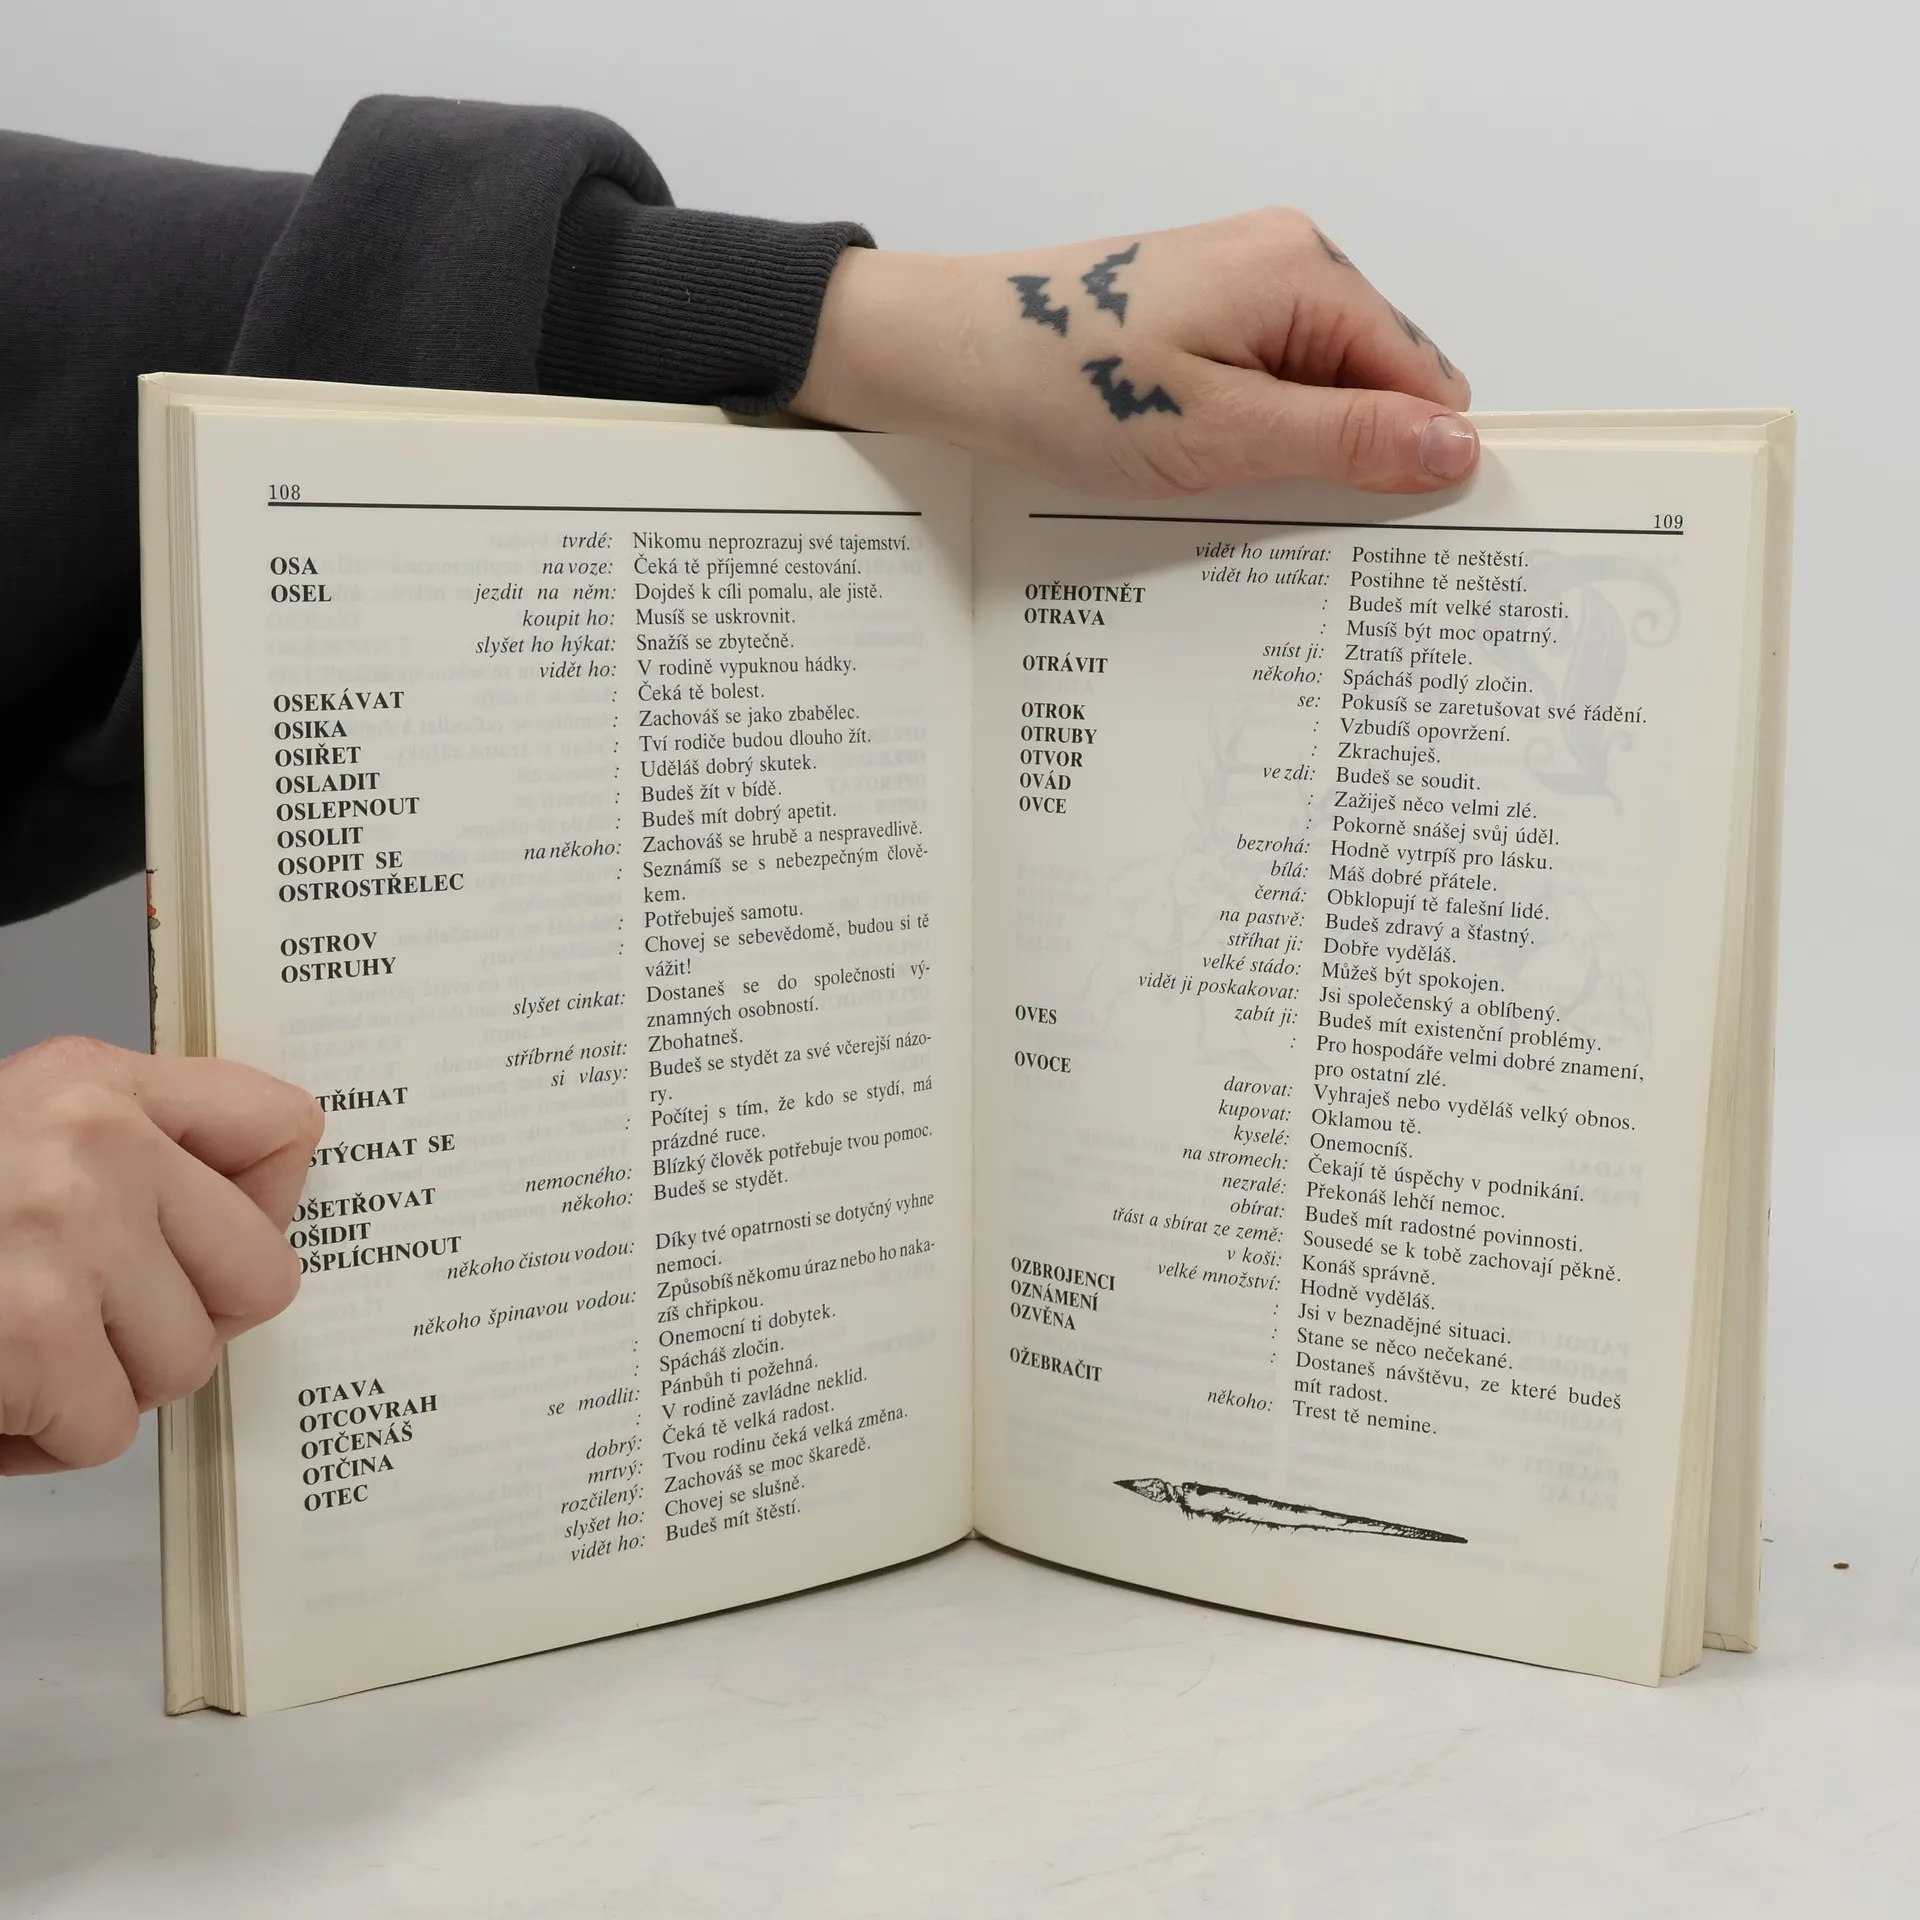 108
tvrdé: Nikomu neprozrazuj své tajemství.
OSA na voze: Čeká tě příjemné cestování.
OSEL jezdit na něm: Dojdeš k cíli pomalu, ale jistě.
koupit ho: Musíš se uskrovnit.
slyšet ho hýkat: Snažíš se zbytečně.
vidět ho: V rodině vypuknou hádky.
OSEKÁVAT : Čeká tě bolest.
OSIKA : Zachováš se jako zbabělec.
OSIŘET : Tví rodiče budou dlouho žít.
OSLADIT : Uděláš dobrý skutek.
OSLEPNOUT : Budeš žít v bídě.
OSOLIT : Budeš mít dobrý apetit.
OSOPIT SE na někoho: Zachováš se hrubě a nespravedlivě.
OSTROSTŘELEC : Seznámíš se s nebezpečným člově-
kem.
OSTROV : Potřebuješ samotu.
OSTRUHY : Chovej se sebevědomě, budou si tě
vážit!
slyšet cinkat: Dostaneš se do společnosti vý-
znamných osobností.
stříbrné nosit: Zbohatneš.
TŘÍHAT si vlasy: Budeš se stydět za své včerejší názo-
ry.
STÝCHAT SE : Počítej s tím, že kdo se stydí, má
prázdné ruce.
OŠETŘOVAT nemocného: Blízký člověk potřebuje tvou pomoc.
OŠIDIT někoho: Budeš se stydět.
OŠPLÍCHNOUT
někoho čistou vodou: Díky tvé opatrnosti se dotyčný vyhne
nemoci.
někoho špinavou vodou: Způsobíš někomu úraz nebo ho naka-
zíš chřipkou.
OTAVA : Onemocní ti dobytek.
OTCOVRAH : Spácháš zločin.
OTČENÁŠ se modlit: Pánbůh ti požehná.
OTČINA : V rodině zavládne neklid.
OTEC dobrý: Čeká tě velká radost.
mrtvý: Tvou rodinu čeká velká změna.
rozčilený: Zachováš se moc škaredě.
slyšet ho: Chovej se slušně.
vidět ho: Budeš mít štěstí.
109
vidět ho umírat: Postihne tě neštěstí.
vidět ho utíkat: Postihne tě neštěstí.
OTĚHOTNĚT : Budeš mít velké starosti.
OTRAVA : Musíš být moc opatrný.
sníst ji: Ztratíš přítele.
OTRÁVIT někoho: Spácháš podlý zločin.
se: Pokusíš se zaretušovat své řádění.
OTROK : Vzbudíš opovržení.
OTRUBY : Zkrachuješ.
OTVOR ve zdi: Budeš se soudit.
OVÁD : Zažiješ něco velmi zlé.
OVCE : Pokorně snášej svůj úděl.
bezrohá: Hodně vytrpíš pro lásku.
bílá: Máš dobré přátele.
černá: Obklopují tě falešní lidé.
na pastvě: Budeš zdravý a šťastný.
stříhat ji: Dobře vyděláš.
velké stádo: Můžeš být spokojen.
vidět ji poskakovat: Jsi společenský a oblíbený.
zabít ji: Budeš mít existenční problémy.
OVES : Pro hospodáře velmi dobré znamení,
pro ostatní zlé.
OVOCE darovat: Vyhraješ nebo vyděláš velký obnos.
kupovat: Oklamou tě.
kyselé: Onemocníš.
na stromech: Čekají tě úspěchy v podnikání.
nezralé: Překonáš lehčí nemoc.
obírat: Budeš mít radostné povinnosti.
třást a sbírat ze země: Sousedé se k tobě zachovají pěkně.
v koši: Konáš správně.
velké množství: Hodně vyděláš.
OZBROJENCI : Jsi v beznadějné situaci.
OZNÁMENÍ : Stane se něco nečekané.
OZVĚNA : Dostaneš návštěvu, ze které budeš
mít radost.
OŽEBRAČIT někoho: Trest tě nemine.